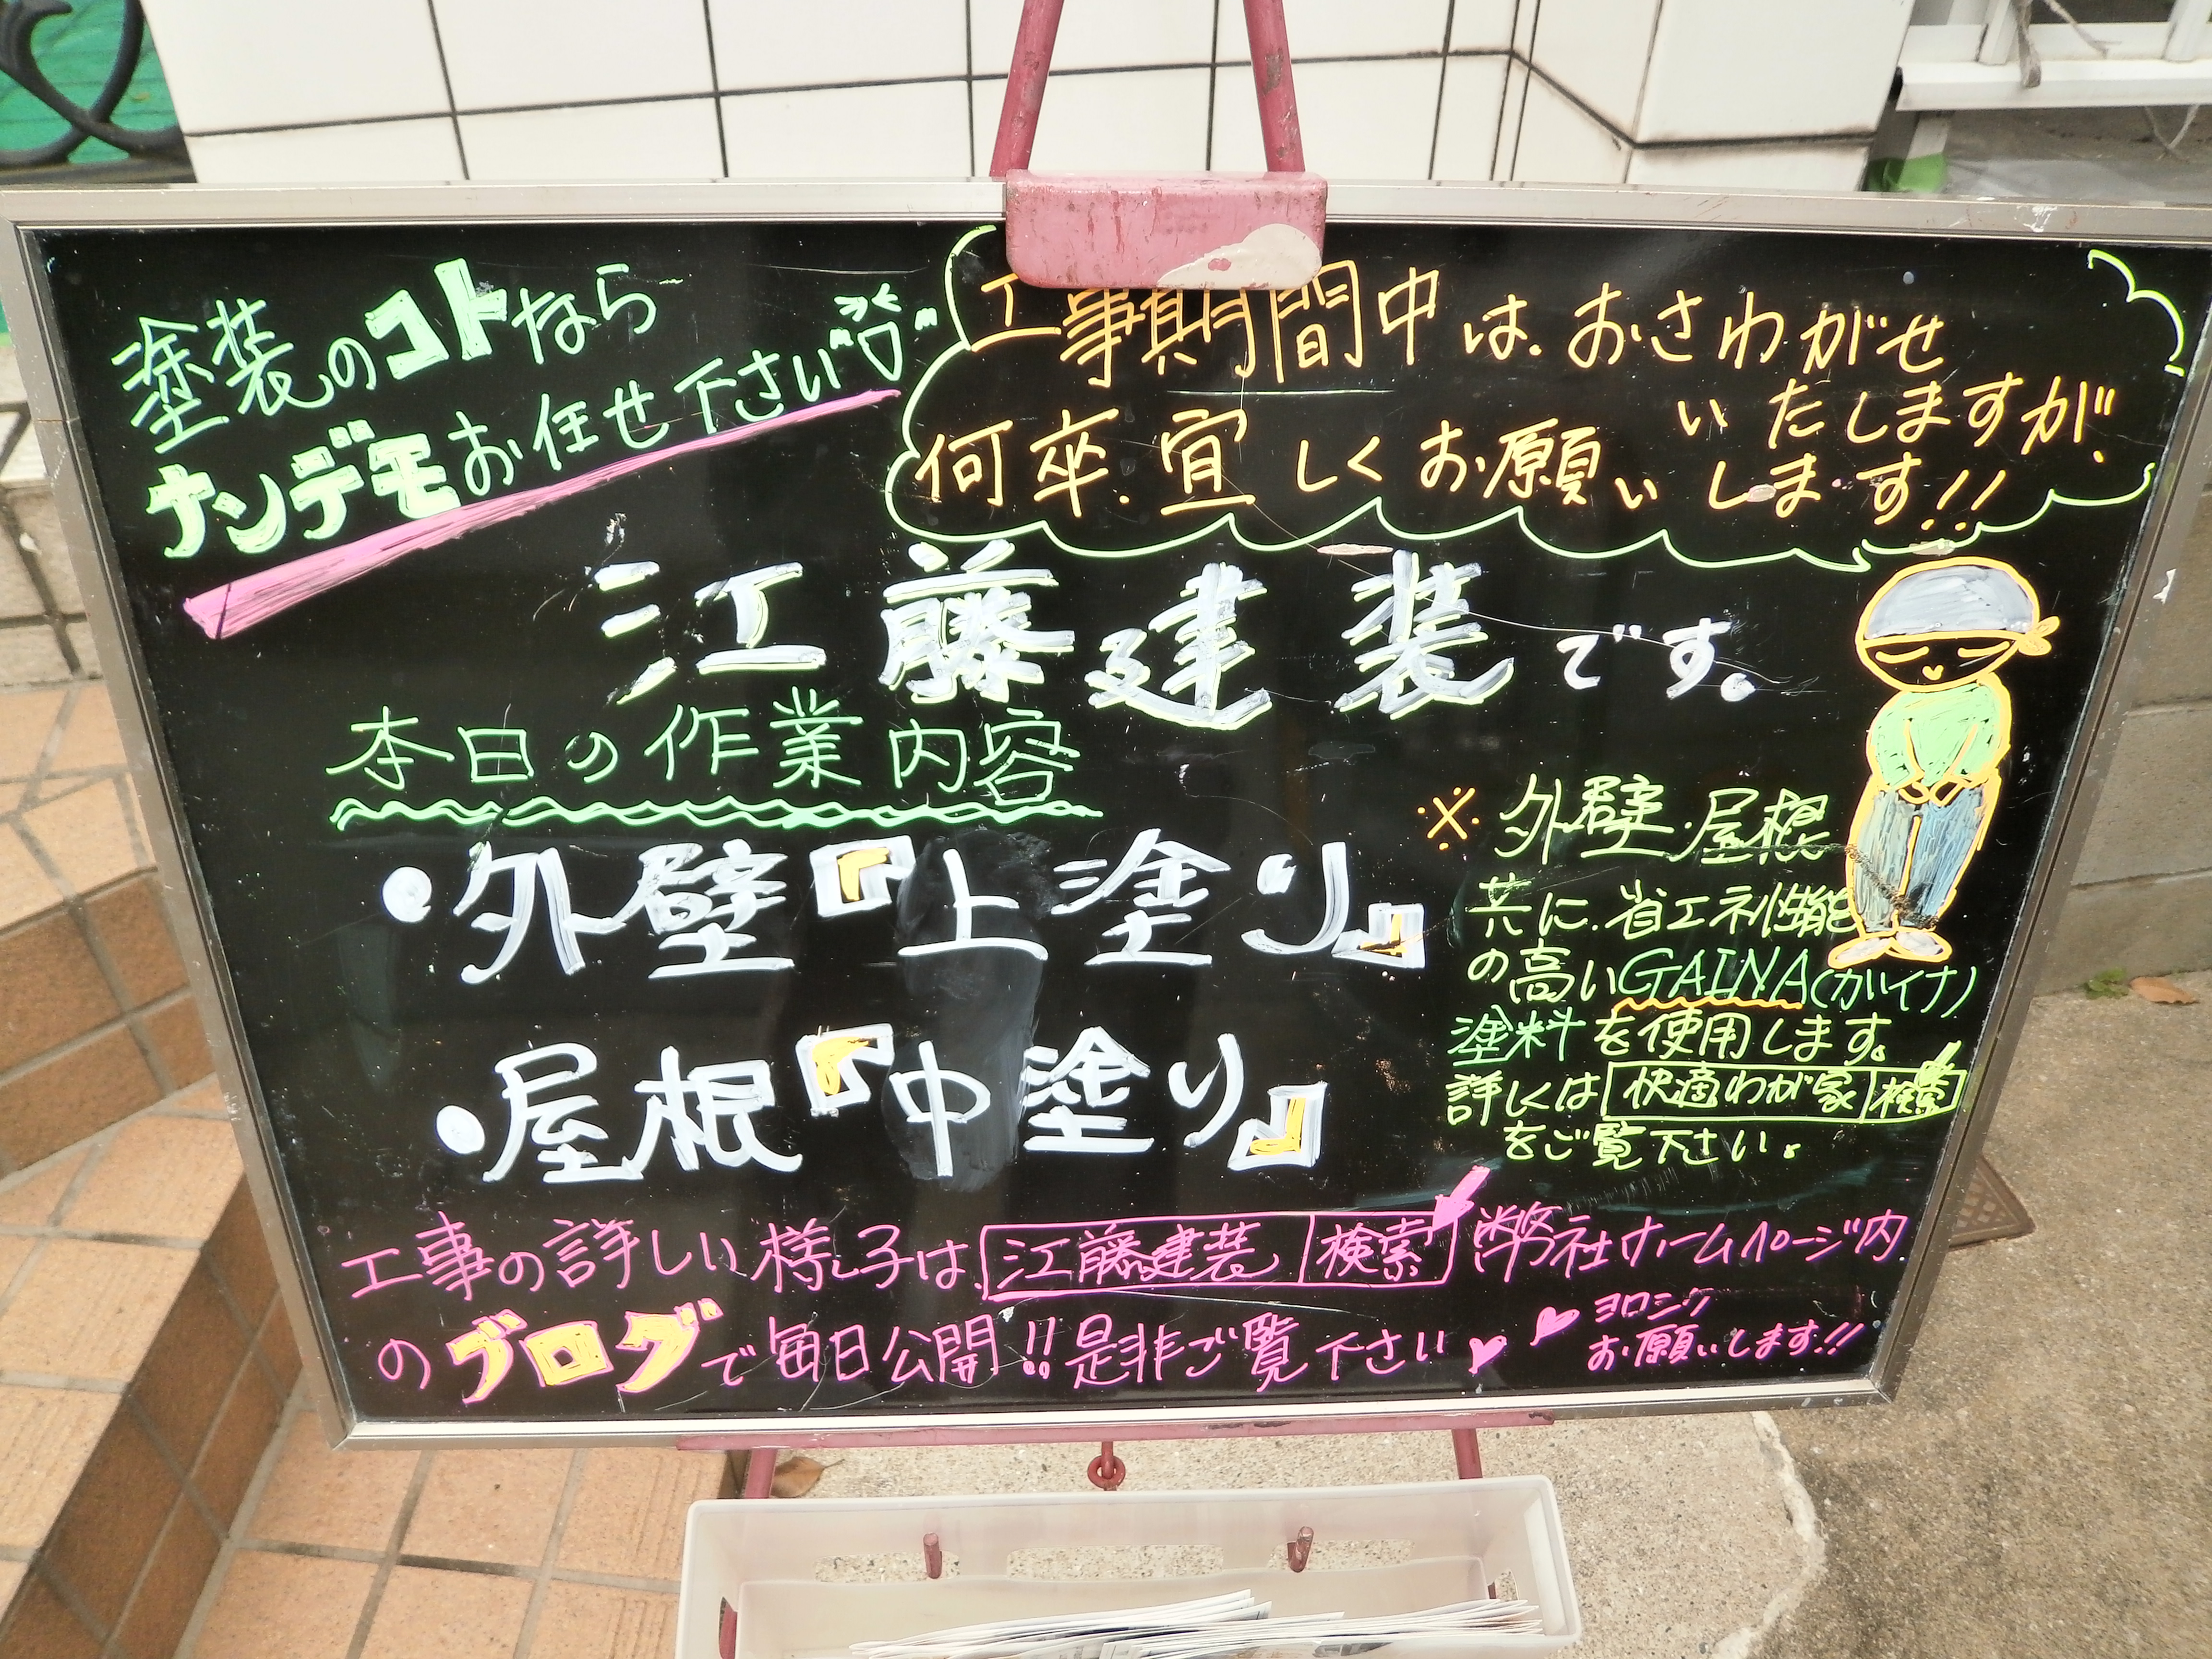 塗装のコトなら
ナンデモお任せ下さい
工事期間中は、おさわがせ
いたしますが、
何卒、宜しくお願いします!!
江藤建装です。
本日の作業内容
・外壁『上塗り』
・屋根『中塗り』
※外壁・屋根
共に、省エネ性能
の高いGAINA(ガイナ)
塗料を使用します。
詳しくは 快適わが家 検索
をご覧下さい。
工事の詳しい様子は、江藤建装 検索 弊社ホームページ内
のブログで毎日公開!!是非ご覧下さい♥
♥ヨロシク
お願いします!!